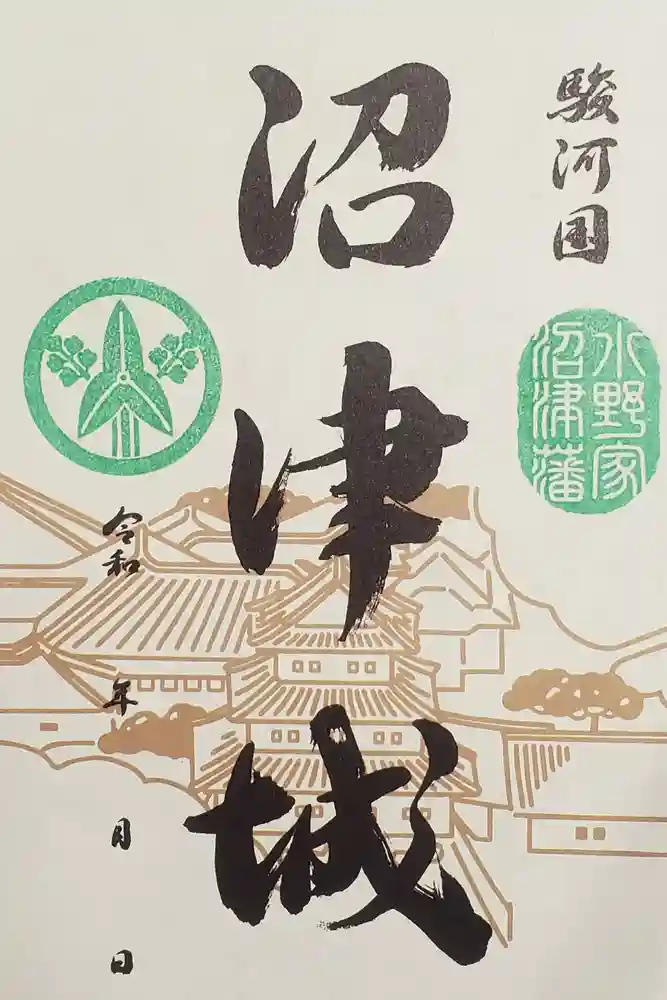 駿河国
水野家
沼津藩
沼津城
令和 年 月 日